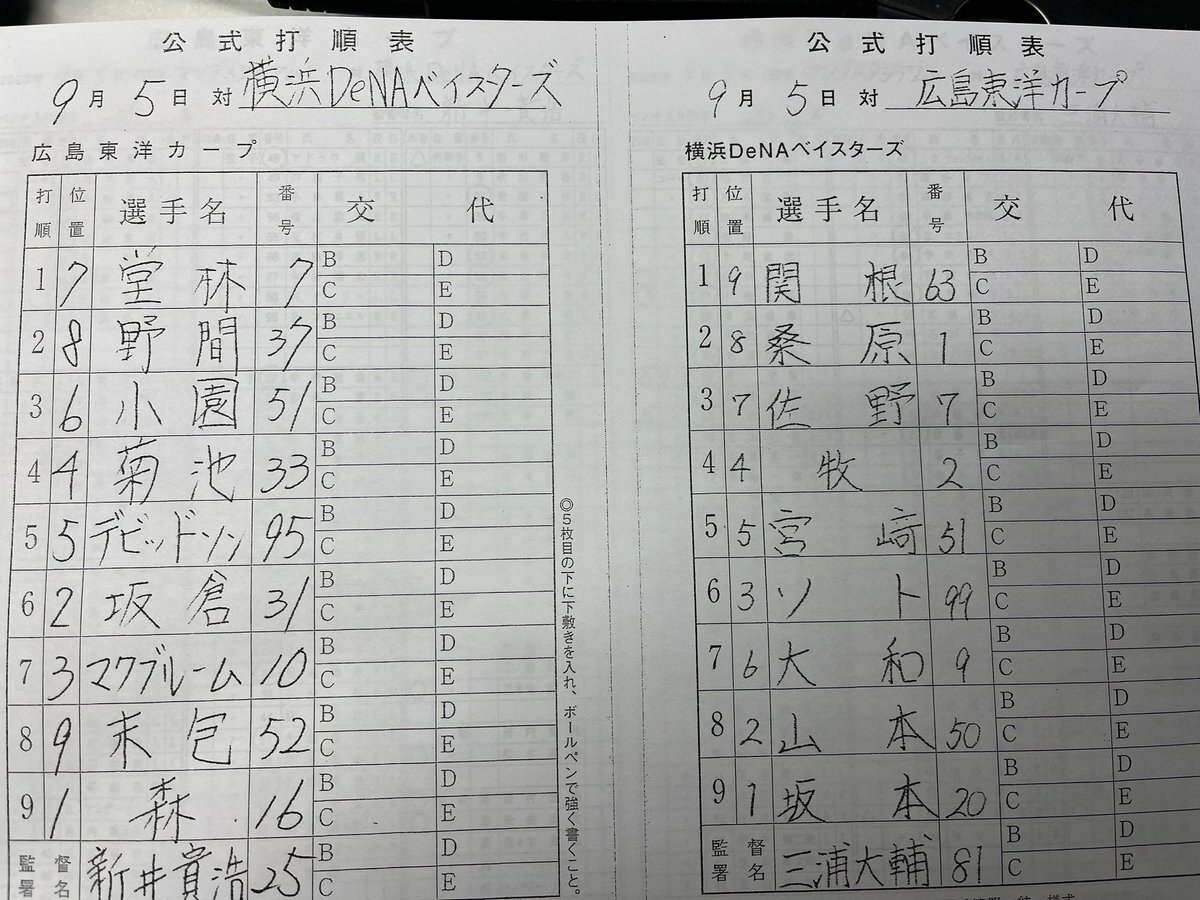 公式打順表
9月5日 対 横浜DeNAベイスターズ
広島東洋カープ
打順 位置 選手名 番号 交代
1 7 堂林 7 B D C E
2 8 野間 37 B D C E
3 6 小園 51 B D C E
4 4 菊池 33 B D C E
5 5 デビッドソン 95 B D C E
6 2 坂倉 31 B D C E
7 3 マクブルーム 10 B D C E
8 9 末包 52 B D C E
9 1 森 16 B D C E
監督署名 新井貴浩 25 B D C E
◎5枚目の下に下敷きを入れ、ボールペンで強く書くこと。
公式打順表
9月5日 対 広島東洋カープ
横浜DeNAベイスターズ
打順 位置 選手名 番号 交代
1 9 関根 63 B D C E
2 8 桑原 1 B D C E
3 7 佐野 7 B D C E
4 4 牧 2 B D C E
5 5 宮﨑 51 B D C E
6 3 ソト 99 B D C E
7 6 大和 9 B D C E
8 2 山本 50 B D C E
9 1 坂本 20 B D C E
監督署名 三浦大輔 81 B D C E